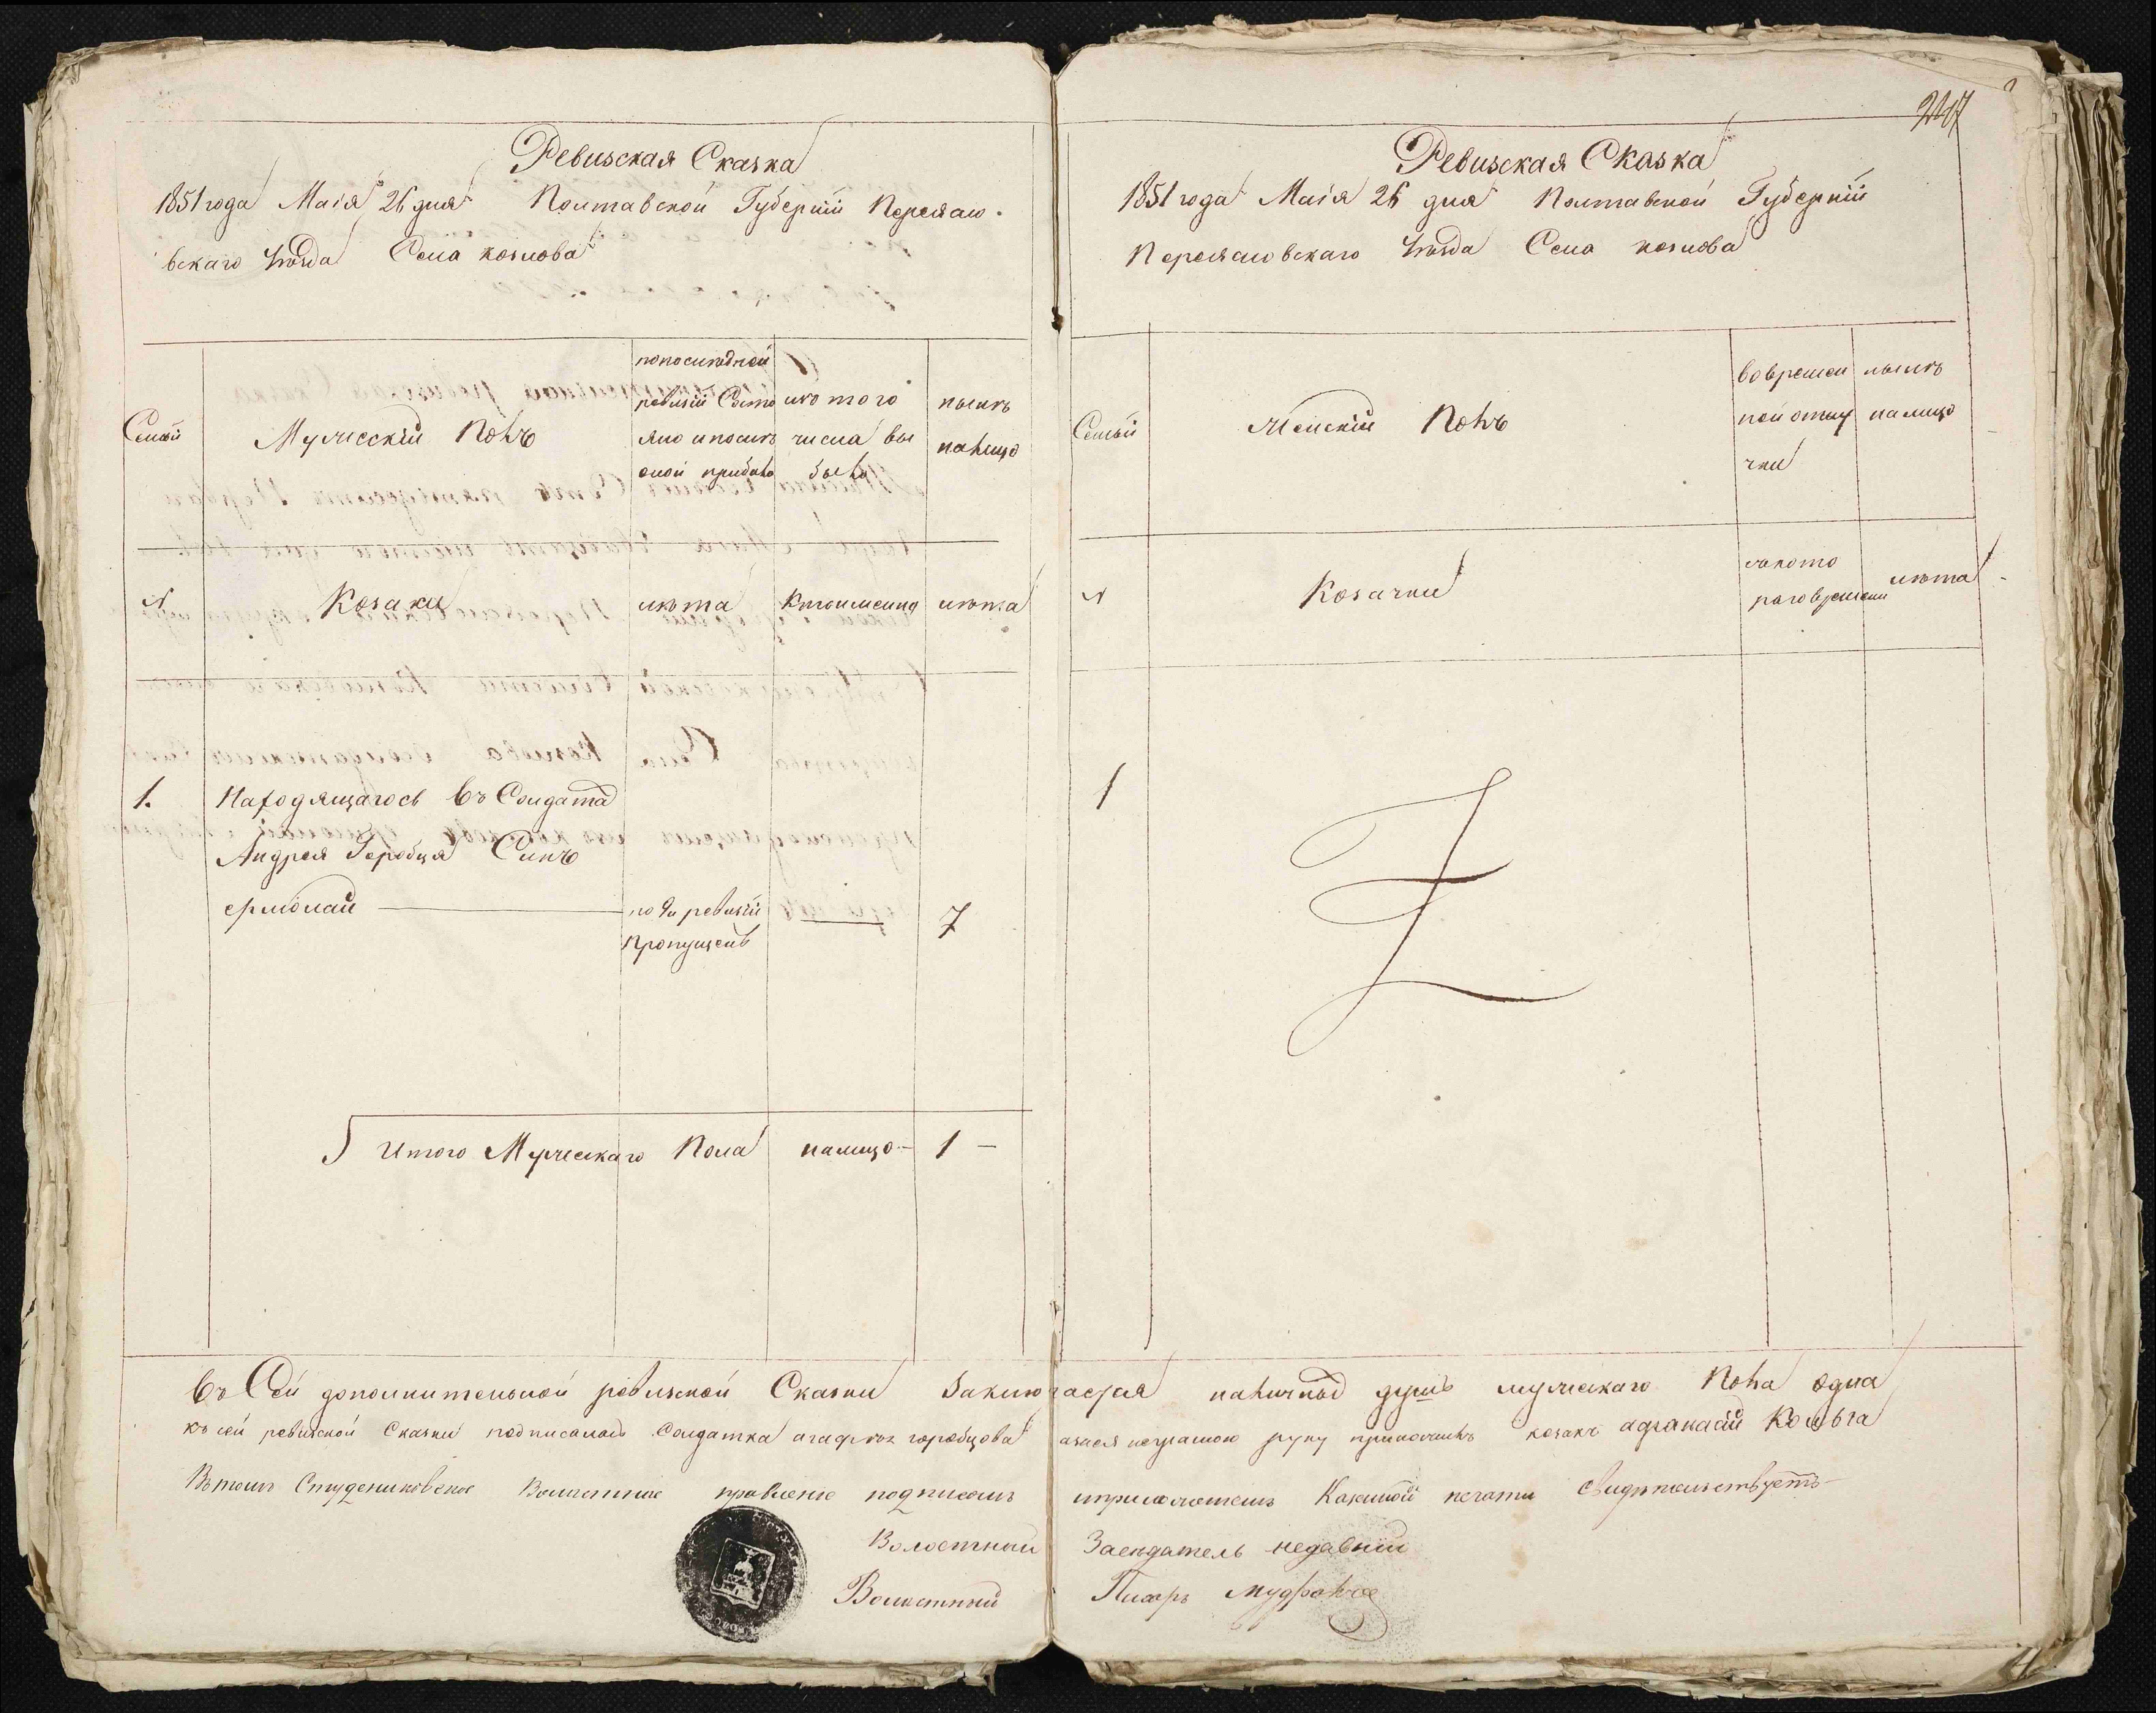 Ревизская Сказка
1851 года Маія 26 дня Полтавской Губерніи Переясло-
вскаго Уѣзда Села козлова
Семьи
Мужескій Полъ
попослѣдней
ревизіи Состо
яло и послѣ
оной прибыло
изъ того
числа вы
было
нынѣ
налицо
№
Козаки
лѣта
Когда именно
лѣта
1.
Находящагося въ Солдатах
Андрея Горобця Синъ
ермолай
по 9й ревизіи
пропущенъ
7
Итого Мужескаго Пола налицо - 1 -
247
Ревизская Сказка
1851 года Маія 26 дня Полтавской Губерніи
Переясловскаго Уѣзда Села козлова
Семьи
Женскій Полъ
вовремен
ной отлу
чки
нынѣ
налицо
№
Козачки
съкото
раго времени
лѣта
1
Въ Сей дополнительной ревизской Сказки Заключается наличныхъ душъ мужескаго Пола одна
къ сей ревизской Сказки подписалась Солдатка агафія горобцова азанея неграмотною руку приложилъ козакъ
Вътомъ Студениковское Волостное правленіе подписомъ иприложеніемъ Казенной печати Свидѣтельствуетъ
Волостный Засидатель недавній
Волостный Писарь